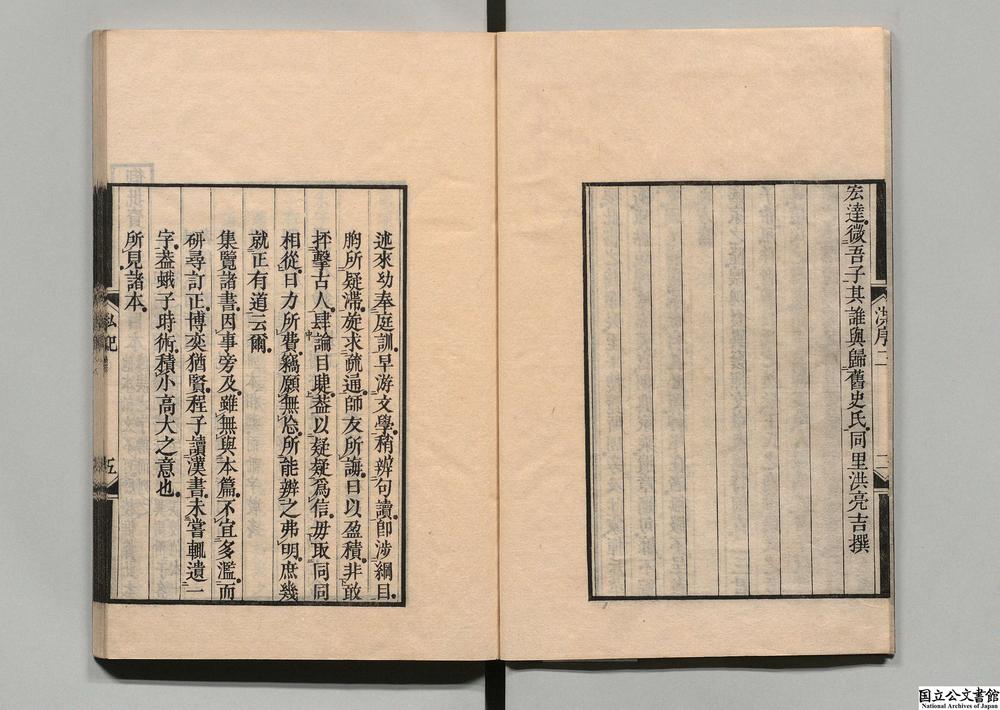 宏達微吾子其誰與歸舊史氏同里洪亮吉撰
洪序
二
述來幼奉庭訓早游文學稍辨句讀卽涉綱目
胸所疑滯旋求疏通師友所誨日以盈積非敢
抨擊古人肆論目睫葢以疑疑爲信毋取同同
相從日力所費竊願無忝所能辨之弗明庶幾
就正有道云爾
集覽諸書因事旁及雖無與本篇不宜多濫而
研尋訂正博奕猶賢程子讀漢書未嘗輒遺一
字葢蛾子時術積小高大之意也
所見諸本
私記
五
国立公文書館
National Archives of Japan